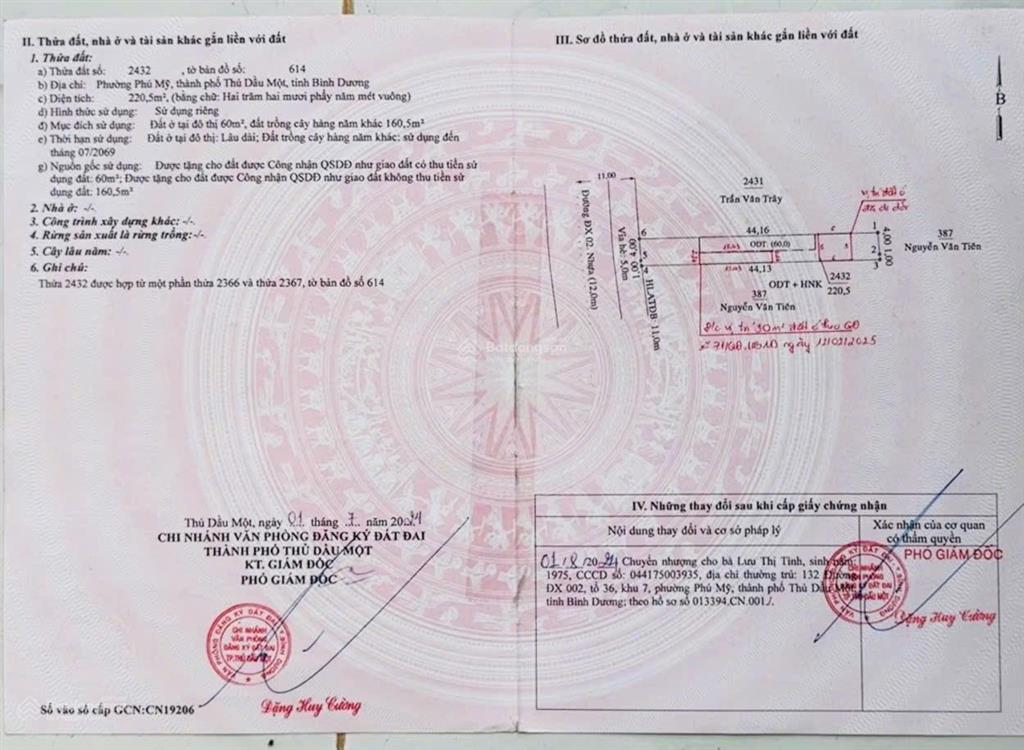 II. Thửa đất, nhà ở và tài sản khác gắn liền với đất
1. Thửa đất:
a) Thửa đất số: 2432 , tờ bản đồ số: 614
b) Địa chỉ: Phường Phú Mỹ, thành phố Thủ Dầu Một, tỉnh Bình Dương
c) Diện tích: 220,5m², (bằng chữ: Hai trăm hai mươi phẩy năm mét vuông)
d) Hình thức sử dụng: Sử dụng riêng
đ) Mục đích sử dụng: Đất ở tại đô thị 60m², đất trồng cây hàng năm khác 160,5m²
e) Thời hạn sử dụng: Đất ở tại đô thị: Lâu dài; Đất trồng cây hàng năm khác: sử dụng đến
tháng 07/2069
g) Nguồn gốc sử dụng: Được tặng cho đất được Công nhận QSDĐ như giao đất có thu tiền sử
dụng đất: 60m²; Được tặng cho đất được Công nhận QSDĐ như giao đất không thu tiền sử
dụng đất: 160,5m²
2. Nhà ở: -/-
3. Công trình xây dựng khác: -/-
4. Rừng sản xuất là rừng trồng:-/-
5. Cây lâu năm: -/-
6. Ghi chú:
Thửa 2432 được hợp từ một phần thửa 2366 và thửa 2367, tờ bản đồ số 614
Thủ Dầu Một, ngày 01 tháng 7 năm 2024
CHI NHÁNH VĂN PHÒNG ĐĂNG KÝ ĐẤT ĐAI
THÀNH PHỐ THỦ DẦU MỘT
KT. GIÁM ĐỐC
PHÓ GIÁM ĐỐC
VĂN PHÒNG ĐĂNG KÝ ĐẤT ĐAI T. BÌNH DƯƠNG
CHI NHÁNH
VĂN PHÒNG
ĐĂNG KÝ ĐẤT ĐAI
TP.THỦ DẦU MỘT
Đặng Huy Cường
Số vào sổ cấp GCN:CN19206
III. Sơ đồ thửa đất, nhà ở và tài sản khác gắn liền với đất
B
11,00
Đường ĐX 02 - Nhựa (12,0m)
Vỉa hè: 5,0m
HLATĐB: 11,0m
2431
Trần Văn Trây
vị trí đất ở
sau di dời
6
44,16
1
4,00
1,00
2
3
387
Nguyễn Văn Tiên
4,00
1,00
5
ODT (60,0)
44,13
2432
220,5
ODT + HNK
387
Nguyễn Văn Tiên
Đ/c vị trí 30m² đất ở theo QĐ
ngày 12/02/2025
Batdongsan
IV. Những thay đổi sau khi cấp giấy chứng nhận
Nội dung thay đổi và cơ sở pháp lý
Xác nhận của cơ quan
có thẩm quyền
01/8/2024 Chuyển nhượng cho bà Lưu Thị Tình, sinh năm
1975, CCCD số: 044175003935, địa chỉ thường trú: 132 Đường
ĐX 002, tổ 36, khu 7, phường Phú Mỹ, thành phố Thủ Dầu Một,
tỉnh Bình Dương; theo hồ sơ số 013394.CN.001./.
PHÓ GIÁM ĐỐC
CHI NHÁNH
VĂN PHÒNG
ĐĂNG KÝ ĐẤT ĐAI
TP.THỦ DẦU MỘT
Đặng Huy Cường